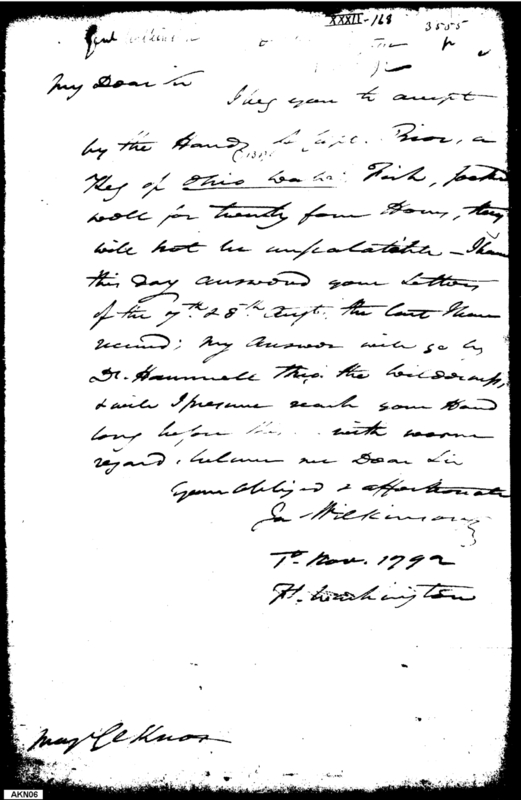 XXXII-168
3555
My Dear Sir
I beg you to accept
by the Hand of Capt. Prior, a
Keg of Ohio Fish, soaked
well for twenty four Hours, they
will not be unpalatable - I have
this day answered your Letters
of the 7th & 8th Augt. the last I have
received; my answer will go by
Dr. thro. the wilderness,
& will I presume reach your Hand
long before this. with warm
regard, believe me Dear Sir
your obliged & affectionate
Ja Wilkinson
Nov. 1792
Ft. Washington
Majr Gl Knox
AKN06